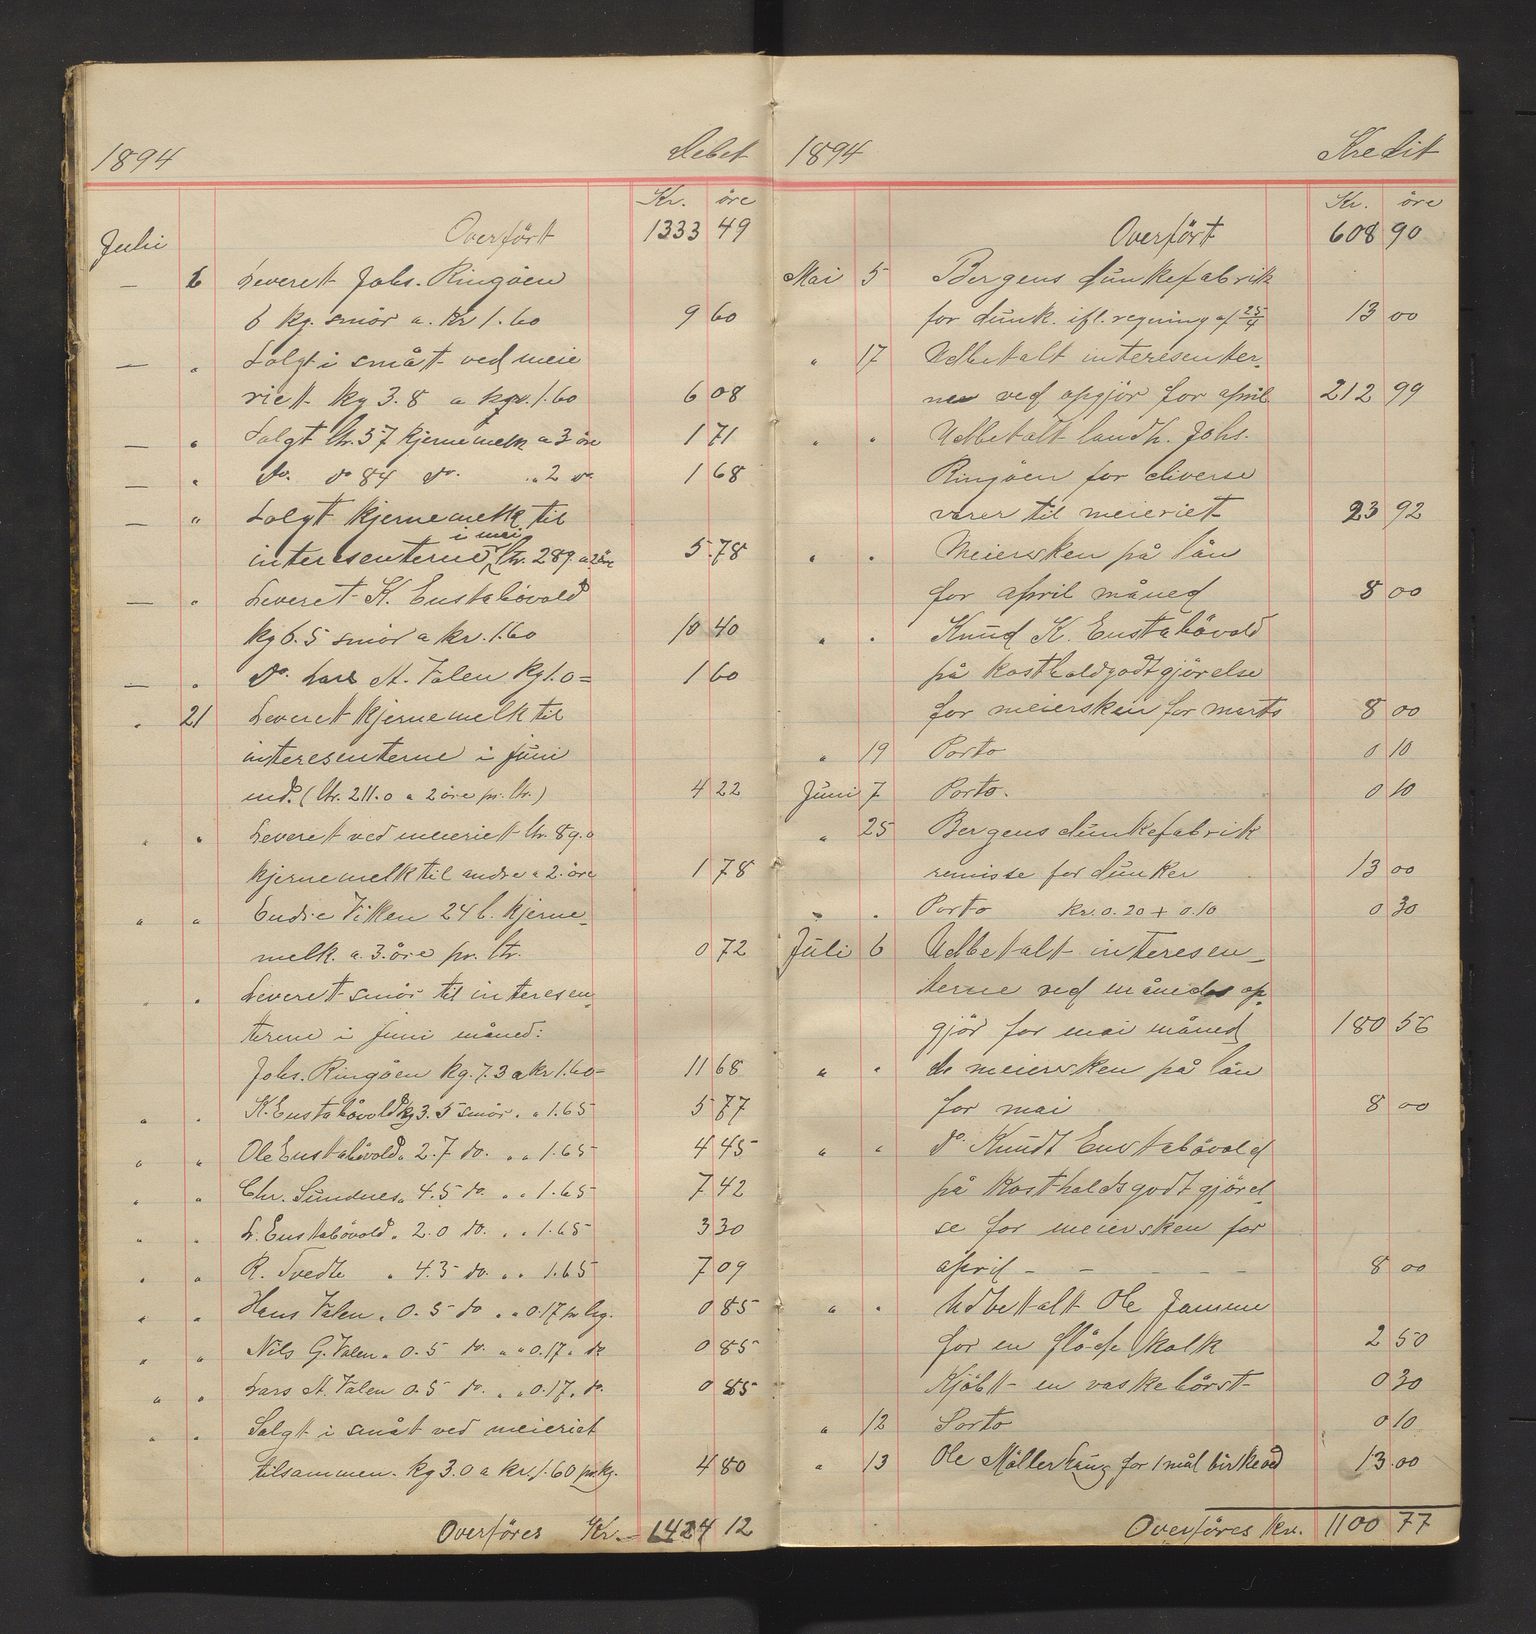 1894 Debet
Kr. öre
Juli Overfört 1333 49
— 6 Leveret Johs. Ringöen
6 kg. smör a. Kr 1.60 9 60
— " Solgt i smått ved meie
riet kg 3.8 a kr. 1.60 6 08
— " Solgt ltr. 57 kjernemelk a 3 öre 1 71
— " do. do 84 do. " 2 do 1 68
— " Solgt kjernemelk til
i mai
interesenterne ltr. 289. a 2 öre 5.78
— " Leveret K. Eustabövold
kg 6.5 smör a kr. 1.60 10 40
— " do. Lars A. Valen kg 1.0 = 1 60
" 21 Leveret kjernemelk til
interesenterne i juni
md. (ltr. 211.0 a 2 öre pr. ltr.) 4 22
" " Leveret ved meieriet ltr. 89.0
kjernemelk til andre a 2 öre 1 78
" " Endre Viken 24 l. kjerne-
melk a. 3. öre pr. ltr. 0 72
" " Leveret smör til interesen-
terne i juni måned:
Johs. Ringöen kg. 7.3 a kr 1.60 = 11 68
" " K. Eustabövold kg 3.5 smör " " 1.65 5 77
" " Ole Eustabövold " 2.7 do. " " 1.65 4 45
" " Chr. Sundnes " 4.5 do. " " 1.65 7 42
" " L. Eustabövold " 2.0 do. " " 1.65 3 30
" " R. Tvedte " 4.3 do. " " 1.65 7 09
" " Hans Valen " 0.5 do " " 0.17 pr hg. 0 85
" " Nils G. Valen " 0.5 do. " " 0.17 " do 0 85
" " Lars A. Valen 0.5 do. " " 0.17 " do. 0 85
" " Solgt i smått ved meieriet
tilsammen. kg 3.0 a kr. 1.60 pr. kg. 4 80
Overföres Kr. — 1424 12
1894 Kredit
Kr. öre
Overfört 608 90
Mai 5 Bergens dunkefabrik
for dunk. ifl. regning af 25/4 13 00
" 17 Udbetalt interesenter-
ne ved opgjör for april 212 99
" " Udbetalt landh. Johs.
Ringöen for diverse
varer til meieriet 23 92
" " Meiersken på lön
for april måned 8 00
" " Knud K. Eustabövold
på kostholdgodtgjörelse
for meiersken for marts 8 00
" 19 Porto 0 10
Juni 7 Porto. 0 10
" 25 Bergens dunkefabrik
remisse for dunker 13 00
" " Porto kr. 0.20 + 0.10 0 30
Juli 6 Udbetalt interesen-
terne ved måneds op-
gjör for mai måned 180 56
" " do meiersken på lön
for mai 8 00
" " do Knudt Eustabövold
på kostholdsgodtgjörel-
se for meiersken for
april - - - - - 8 00
" " Udbetalt Ole Jamne
for en flöde skolk 2 50
Kjöbt en vaskebörst 0 30
" 12 Porto 0 10
" 13 Ole Möllerhaug for 1 mål birkeved 13.00
Overföres kr. 1100 77